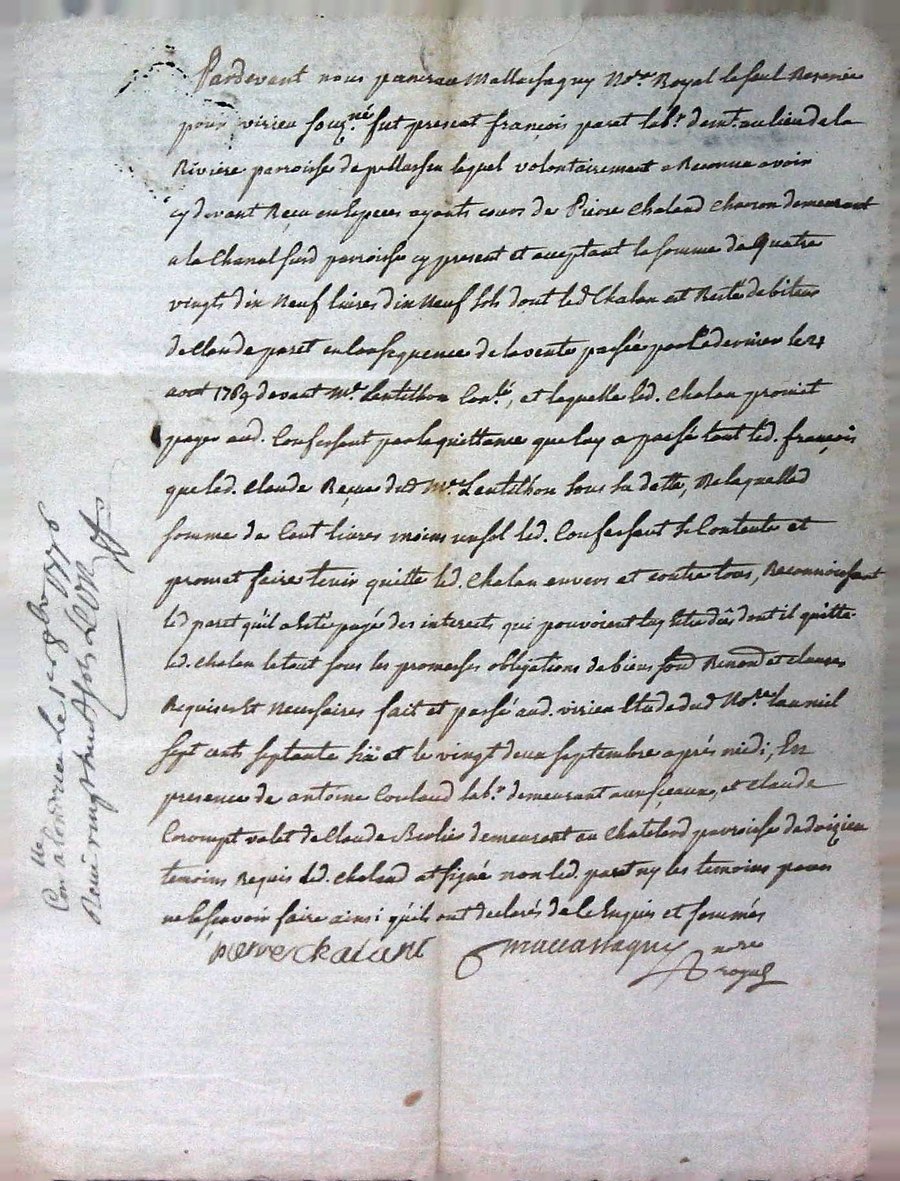 Pardevant nous pancrace Mallassagny No.re Royal le seul Reservé
pour virieu sousg.né fut present françois paret lab.r dem.t au lieu de la
Riviere parroisse de pellussin lequel volontairement a Reconnu avoir
cy devant Reçu en especes ayants cours de Pierre Chaland Charon demeurant
a la Chanal susd parroisse cy present et acceptant la somme de Quatre
vingts dix Neuf livres dix Neuf sols dont led Chalan est Resté debiteur
de Claude paret en Consequence de la vente passée par le dernier le 21
aout 1769 devant M.e Lentillon Con.le, et laquelle led. Chalan promit
payer aud. Confessant par la quittance que luy a passé tant led. françois
que led. Claude Reçue dud M.e Lentillon sous sa datte, De laquelled
somme de Cent livres moins un sol led. Confessant se Contente et
promet faire tenir quitte led. Chalan envers et contre tous, Reconnoissant
led paret qu'il a été payé des interests qui pouvoient luy être dûs dont il quitte
led. Chalan le tout sous les promesses obligations de biens soud Renond et clauses
Requises et Necessaires fait et passé aud. virieu Etude dud No.re l'an mil
sept cents septante six et le vingt deux septembre après midi, En
presence de antoine Couland lab.r demeurant aux sceaux, et Claude
Corompt valet de Claude demeurant au Chatelard parroisse de doizieu
temoins Requis led. Chaland at signé non led. paret ny les temoins pour
ne le sçavoir faire ainsi qu'ils ont declarés de ce Enquis et sommés
pierre chalant mallassagny nore
royal
Con.lle a Condrieu le 1er 8bre 1776
Reçu vingt huit sols